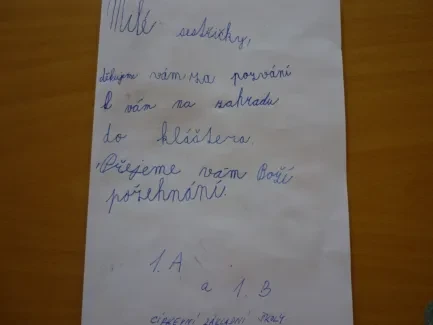 Milé sestřičky,
děkujeme vám za pozvání
k vám na zahradu
do kláštera.
Přejeme vám Boží
požehnání.
1. A
a 1. B
CÍRKEVNÍ ZÁKLADNÍ ŠKOLY